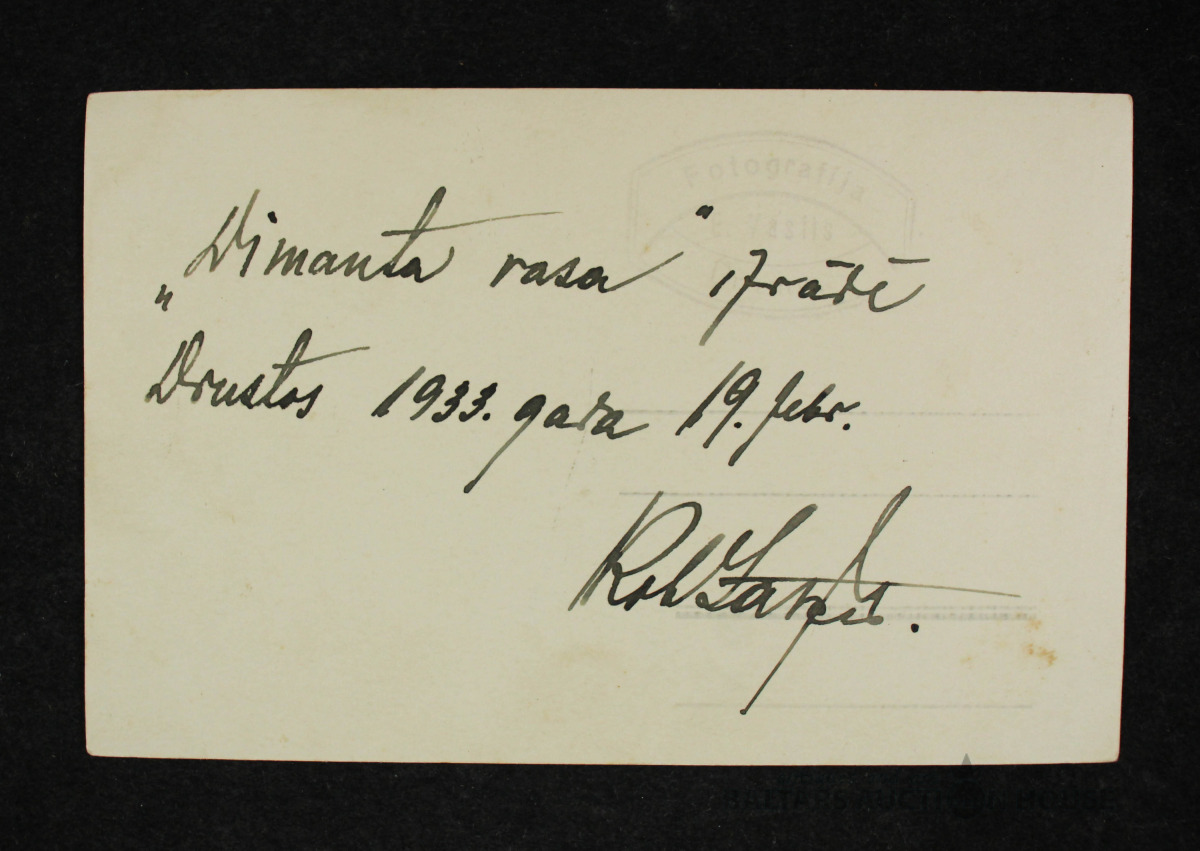 Fotografija
„Dimanta rasa" izrādē
Drustos 1933. gada 19. febr.
Rob
BALTARS AUCTION HOUSE